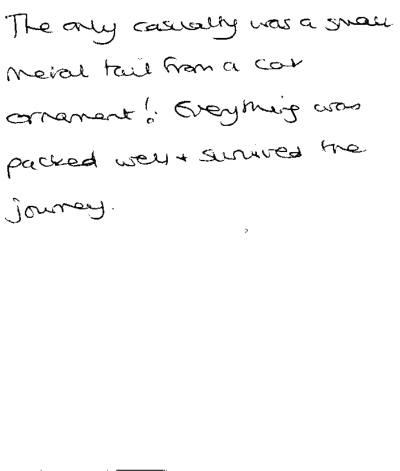 The only casualty was a small
metal tail from a cat
ornament!. Everything was
packed well + survived the
journey.